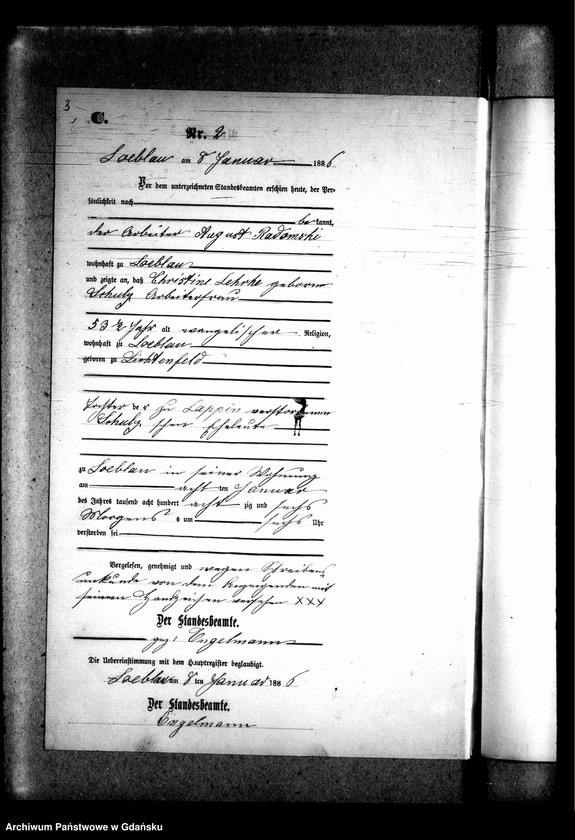 3
C.
Nr. 2
Loeblau am 8 Januar 1886
Vor dem unterzeichneten Standesbeamten erschien heute, der Per-
sönlichkeit nach
be kannt,
der Arbeiter August Radomski
wohnhaft zu Loeblau
und zeigte an, daß Christine Lehrke geborne
Schulz Arbeiterfrau
53 ½ Jahr alt evangelischer Religion,
wohnhaft zu Loeblau
geboren zu Lichtenfeld
Tochter der zu Lappin verstorbenen
Schulz schen Eheleute
zu Loeblau in seiner Wohnung
am acht ten Januar
des Jahres tausend acht hundert acht zig und sechs
Morgens um sechs Uhr
verstorben sei
Vorgelesen, genehmigt und wegen Schreibens
unkunde von dem Anzeigenden mit
seinem Handzeichen versehen XXX
Der Standesbeamte.
gez: Engelmann
Die Uebereinstimmung mit dem Hauptregister beglaubigt.
Loeblau am 8 ten Januar 1886
Der Standesbeamte.
Engelmann
Archiwum Państwowe w Gdańsku